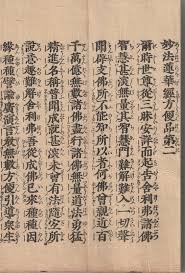 妙法蓮華經方便品第二
爾時世尊從三昧安詳而起告舍利弗諸佛
智慧甚深無量其智慧門難解難入一切聲
聞辟支佛所不能知所以者何佛曾親近百
千萬億無數諸佛盡行諸佛無量道法勇猛
精進名稱普聞成就甚深未曾有法隨宜所
說意趣難解舍利弗吾從成佛已來種種因
緣種種譬諭廣演言教無數方便引導衆生